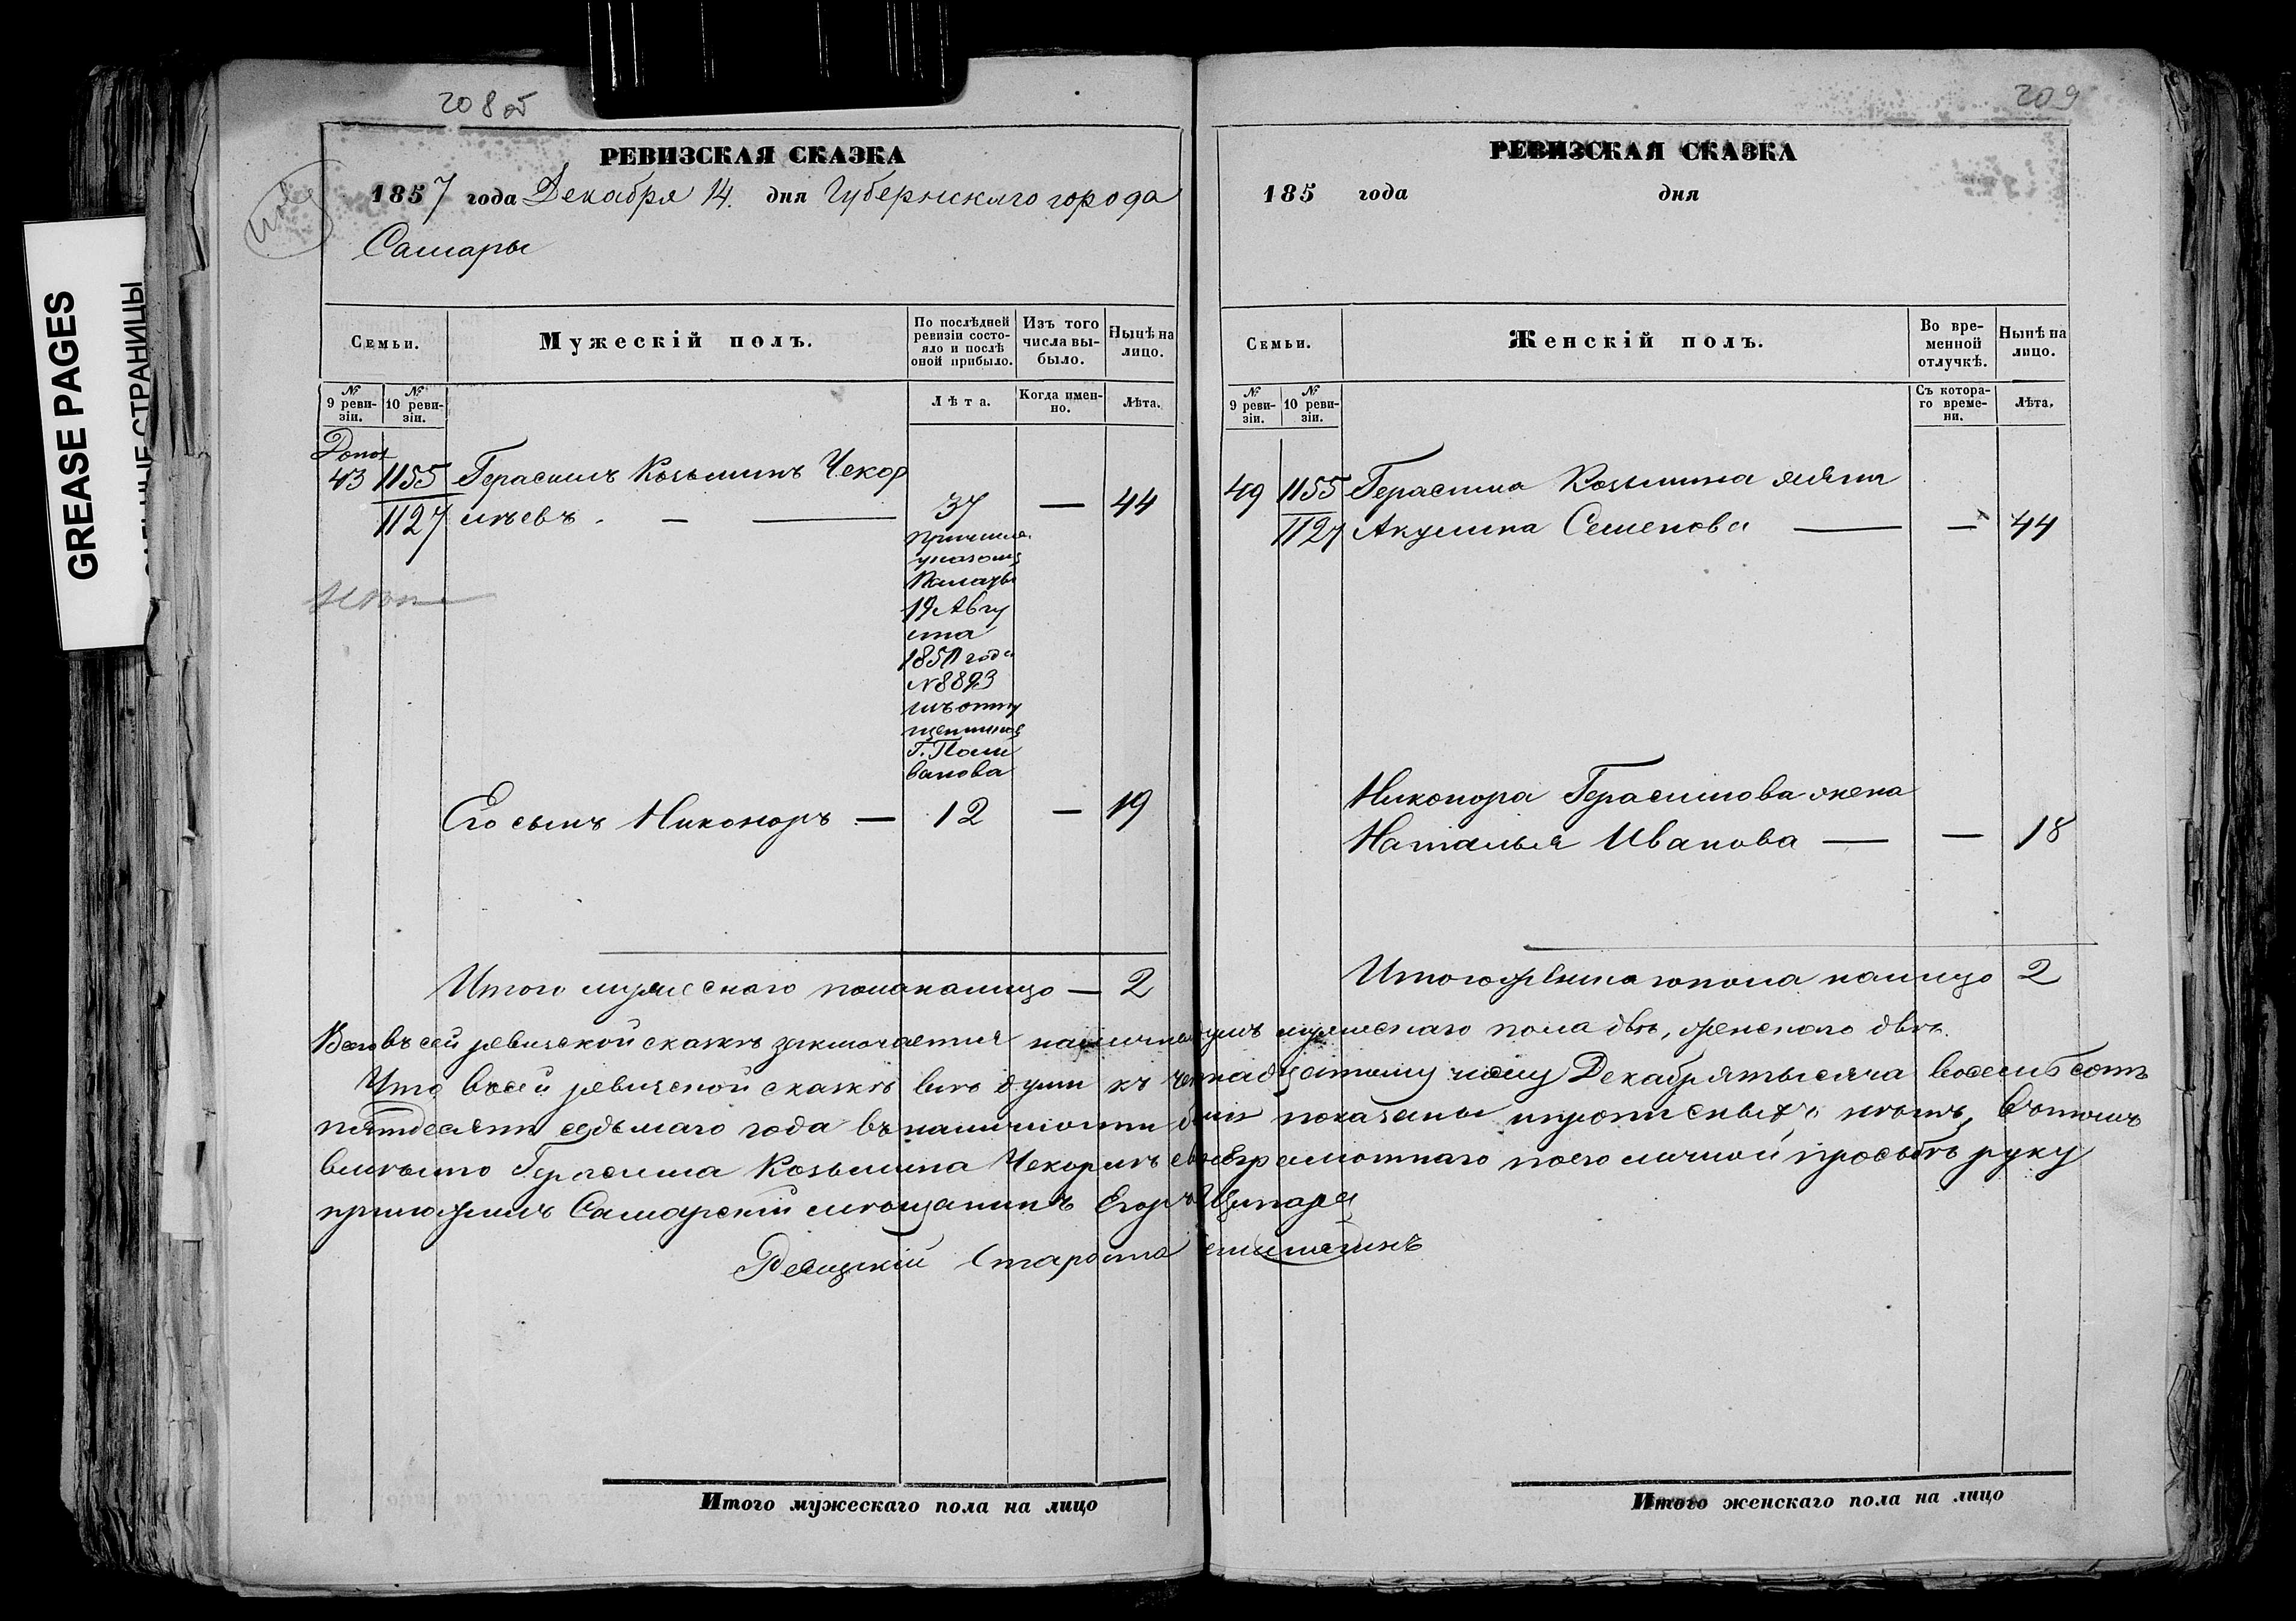 GREASE PAGES
СТРАНИЦЫ
208 об
РЕВИЗСКАЯ СКАЗКА
1857 года Декабря 14. дня Губернскаго города
Самары
Семьи.
Мужескій полъ.
По послѣдней ревизіи состояло и послѣ оной прибыло.
Изъ того числа выбыло.
Нынѣ на лицо.
№ 9 ревизіи.
№ 10 ревизіи.
Лѣта.
Когда именно.
Лѣта.
43 1155 Герасимъ Козьминъ Чекор
1127 мѣевъ. — — 37 — 44
указомъ
Палаты
19 Авгу
ста
года
№ 8893
изъ отпу
щенниковъ
Г. Поли
ванова
Его сынъ Никоноръ — 12 — 19
Итого мужескаго пола налицо — 2
209
РЕВИЗСКАЯ СКАЗКА
185 года дня
Семьи.
Женскій полъ.
Во временной отлучкѣ.
Нынѣ на лицо.
№ 9 ревизіи.
№ 10 ревизіи.
Съ котораго времени.
Лѣта.
49 1155 Герасима Козьмина жена
1127 Акулина Семенова — — 44
Никонора Герасимова жена
Наталья Иванова — — 18
Итого женскаго пола налицо 2
Всего въ сей ревизской сказкѣ заключается наличныхъ душъ мужескаго пола двѣ, женскаго двѣ.
Что въ сей ревизской сказкѣ всѣ души къ четырнадцатому числу Декабря тысяча восемь сотъ
пятдесятъ седьмаго года въ наличности были показаны и прописныхъ нѣтъ, въ томъ
вмѣсто Герасима Козьмина неграмотнаго по его личной прозьбѣ руку
приложилъ Самарскій мѣщанинъ Егоръ
Староста
Итого мужескаго пола на лицо
Итого женскаго пола на лицо